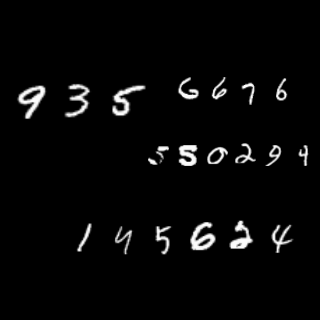 935
6676
550294
145624